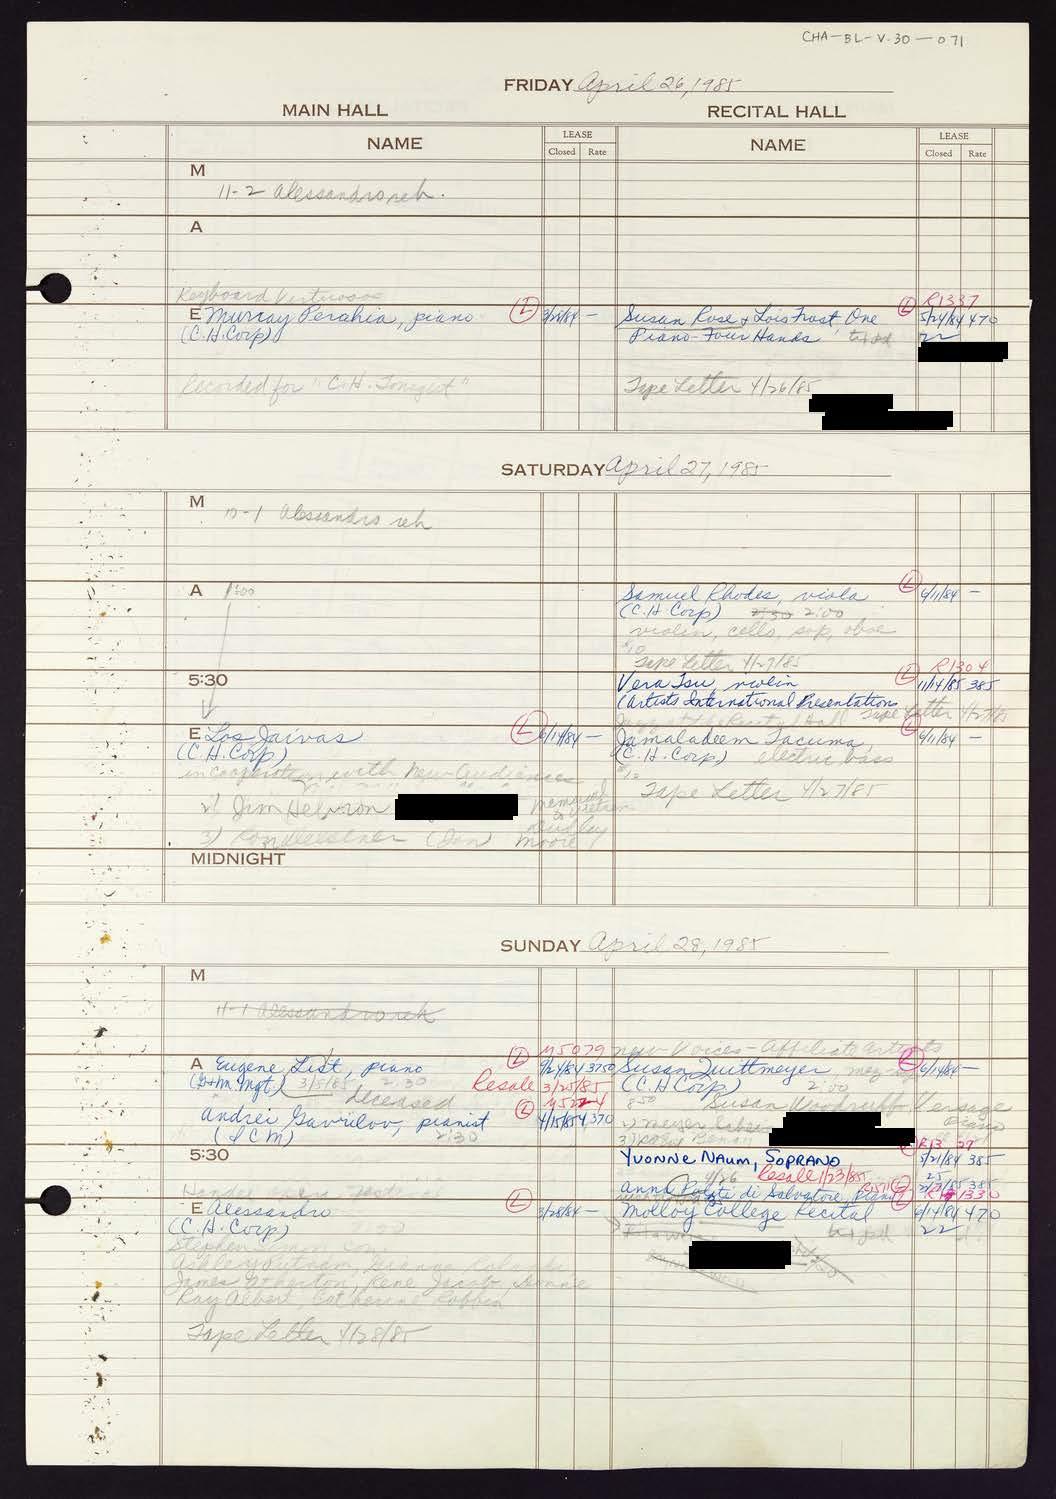 CHA-BL-V.30-071
FRIDAY April 26, 1985
MAIN HALL RECITAL HALL
NAME LEASE Closed Rate NAME LEASE Closed Rate
M
11-2 Alessandro reh.
A
Keyboard Virtuosos
E Murray Perahia, piano L
(C.H. Corp)
Recorded for "C.H. Tonight"
L R1337
Susan Rose & Lois Frost One 5/24/84 470
Piano-Four Hands 22
Tape Letter 4/26/85
SATURDAY April 27, 1985
M
10-1 Alessandro reh
A 1:00
Samuel Rhodes, viola L 6/11/84 -
(C.H. Corp) 2:30 2:00
violin, cello, sop, oboe
$10
Tape Letter 4/27/85
5:30
L R1304
Vera Tsu, violin 11/14/85 385
(Artists International Presentation
Tape Letter 4/27/85
E Los Jaivas L 6/14/84 -
(C.H. Corp)
in cooperation with New Audiences
2) Jim
3) (Don)
Dudley
Moore
Jamaladeen Tacuma, L 6/11/84 -
(C.H. Corp) electric bass
$12
Tape Letter 4/27/85
MIDNIGHT
SUNDAY April 28, 1985
M
11-1 Alessandro reh
A Eugene List, piano L M5079 9/24/84 3750
3/5/85 2:30 Resale 3/25/85
deceased
Andrei Gavrilov, pianist L
(ICM) 2:30
New Voices - Affiliate Artists
Susan Quittmeyer, mezzo L 6/14/84 -
(C.H. Corp) 2:00
Susan Woodruff Versage
piano
5:30
Yvonne Naum, Soprano 5/21/84 385
4/26 Resale 1/23/85 25
Anna Ponte di Salvatore, piano
E Alessandro L 3/28/84 -
(C.H. Corp)
Molloy College Recital 6/14/84 470
22
Stephen Simon, con
James Atherton, Rene Jacobs,
Ray Albert, Catherine Robbin
Tape Letter 4/28/85